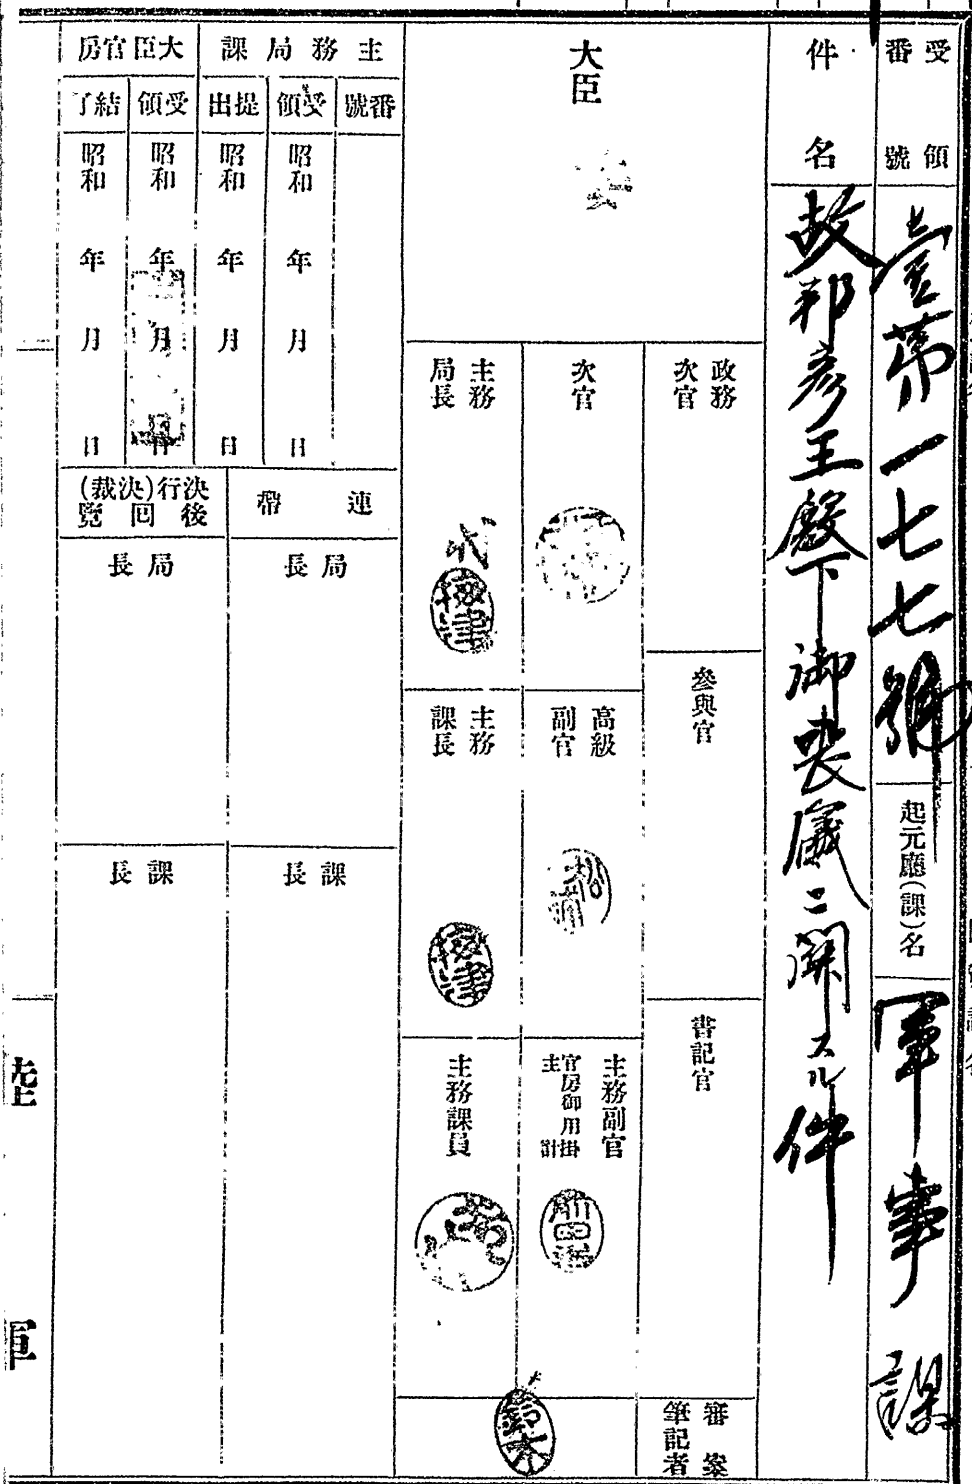 受領番號
壹第一七七七號
起元廳(課)名
軍事課
件名
故邦彦王殿下御喪儀ニ関スル件
大臣
政務次官
參與官
書記官
審案筆記者
次官
高級副官
主務副官
官房御用掛
主計
鈴木
主務局長
代
梅津
主務課長
梅津
主務課員
主務局課
番號
受領
昭和 年 月 日
提出
昭和 年 月 日
大臣官房
受領
昭和 年 月 日
結了
昭和 年 月 日
連帶
局長
課長
決行(決裁)後回覽
局長
課長
陸軍